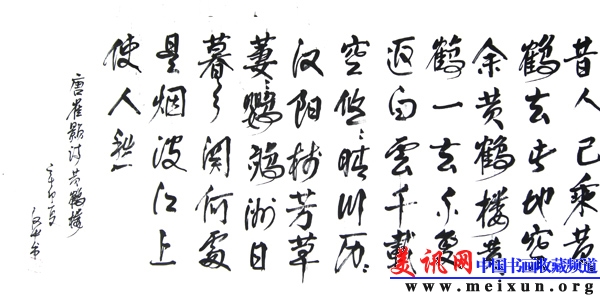 昔人已乘黄
鹤去此地空
余黄鹤楼黄
鹤一去不复
返白雲千载
空悠〻晴川历〻
汉阳树芳草
萋〻鹦鹉洲日
暮乡関何處
是烟波江上
使人愁
唐崔颢诗黄鹤楼
美讯网 中国书画收藏频道
www.meixun.org